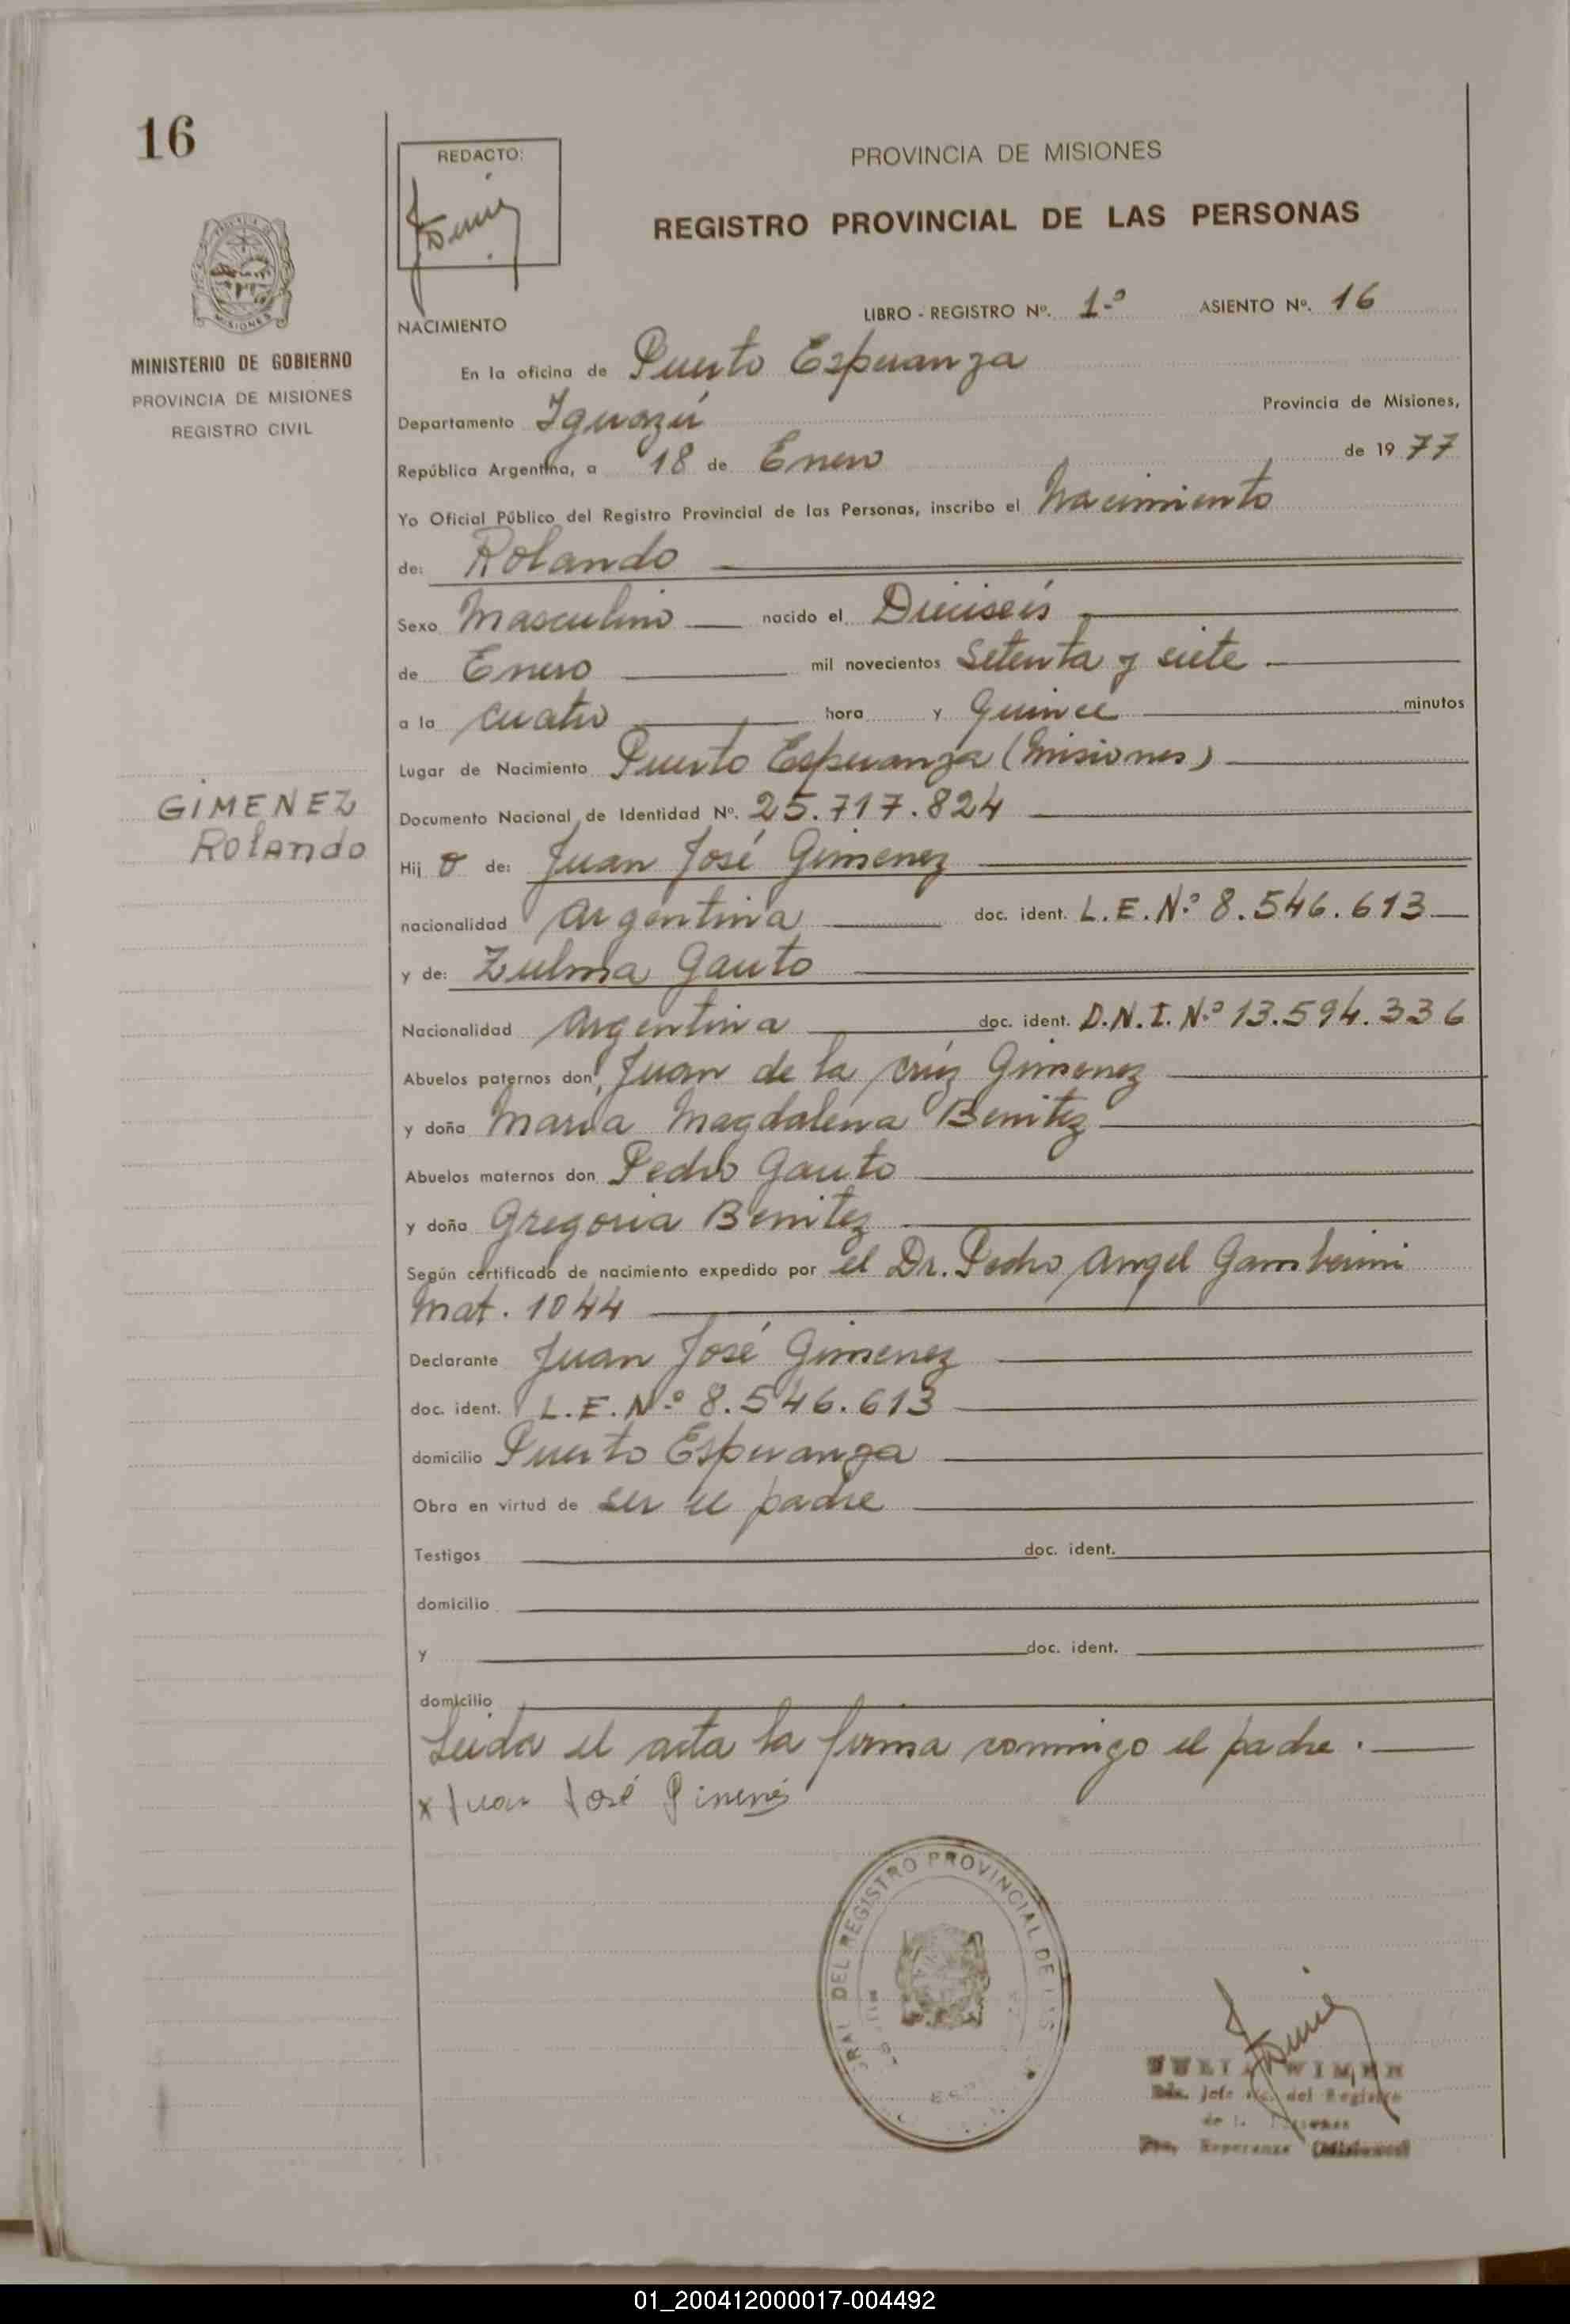 16
REDACTO:
PROVINCIA DE MISIONES
REGISTRO PROVINCIAL DE LAS PERSONAS
MISIONES
MINISTERIO DE GOBIERNO
PROVINCIA DE MISIONES
REGISTRO CIVIL
LIBRO - REGISTRO Nº. 1-º ASIENTO Nº. 16
NACIMIENTO
En la oficina de Puerto Esperanza
Departamento Iguazú Provincia de Misiones,
República Argentina, a 18 de Enero de 1977
Yo Oficial Público del Registro Provincial de las Personas, inscribo el Nacimiento
de: Rolando
Sexo Masculino nacido el Dieciseis
de Enero mil novecientos Setenta y siete
a la cuatro hora y Quince minutos
Lugar de Nacimiento Puerto Esperanza (Misiones)
GIMENEZ
Rolando
Documento Nacional de Identidad Nº. 25.717.824
Hij o de: Juan José Gimenez
nacionalidad Argentina doc. ident. L.E.N.º 8.546.613
y de: Zulma Gauto
Nacionalidad Argentina doc. ident. D.N.I. N.º 13.594.336
Abuelos paternos don Juan de la Crúz Gimenez
y doña María Magdalena Benitez
Abuelos maternos don Pedro Gauto
y doña Gregoria Benitez
Según certificado de nacimiento expedido por el Dr. Pedro Angel Gamberini
Mat. 1044
Declarante Juan José Gimenez
doc. ident. L.E. N.º 8.546.613
domicilio Puerto Esperanza
Obra en virtud de ser el padre
Testigos doc. ident.
domicilio
y doc. ident.
domicilio
Leida el acta la firma conmigo el padre.
x Juan José Gimenés
DEL REGISTRO PROVINCIAL DE LAS
del Registro
Esperanza (Misiones)
01_200412000017-004492